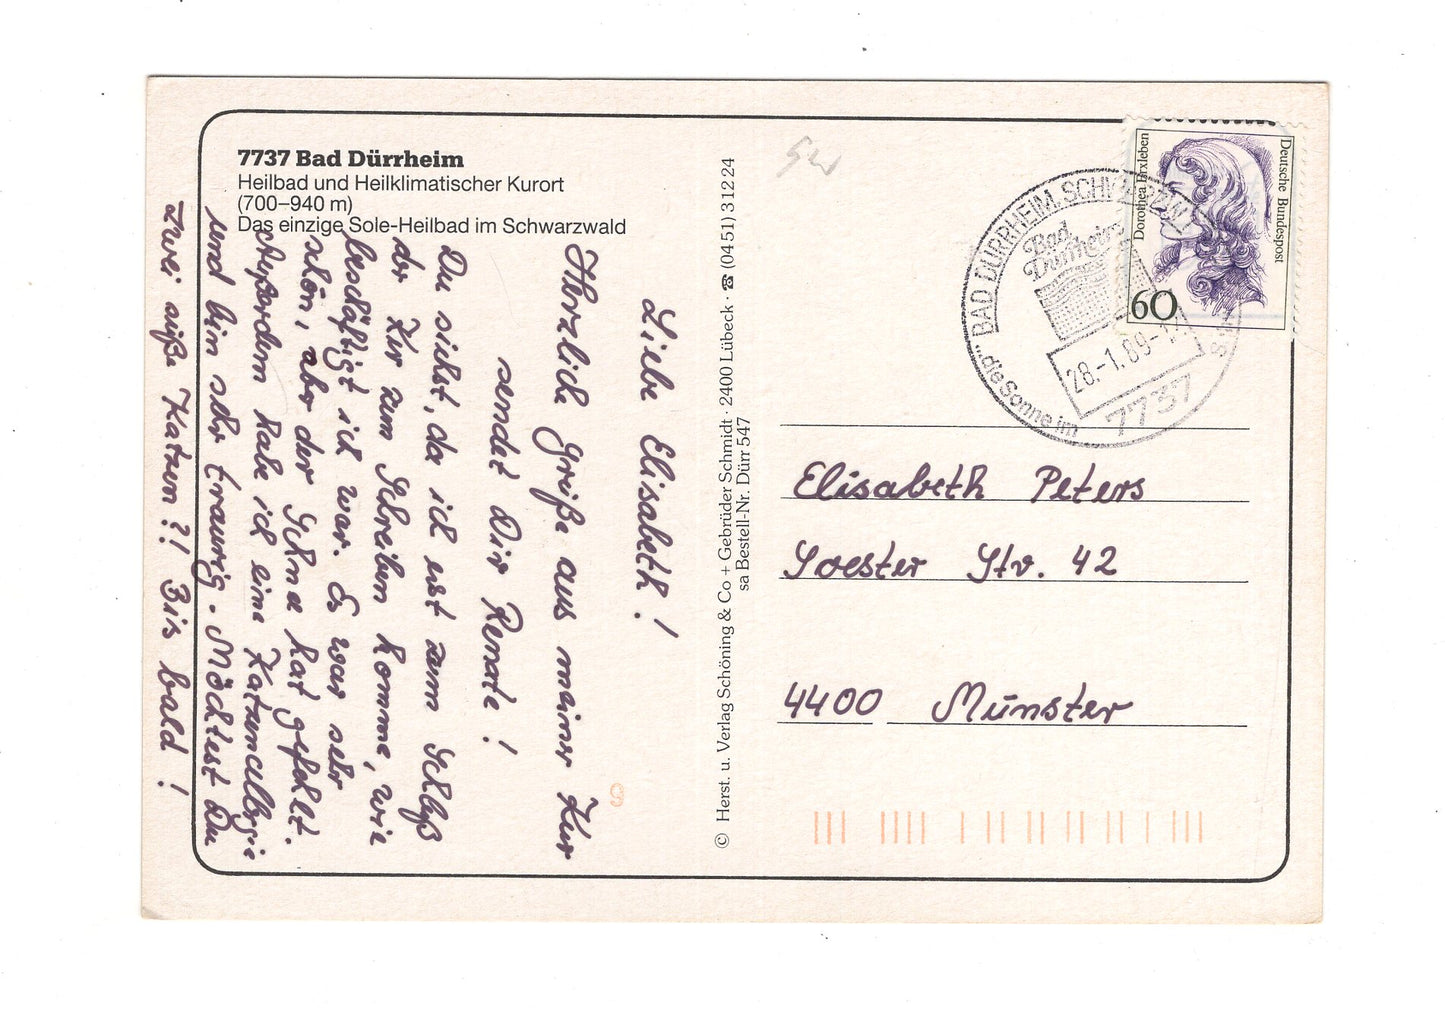 7737 Bad Dürrheim
Heilbad und Heilklimatischer Kurort
(700–940 m)
Das einzige Sole-Heilbad im Schwarzwald
Liebe Elisabeth!
Herzliche Grüße aus meiner Kur
sendet Dir Renate!
Du siehst, da ich erst zum Schluß
der Kur zum Schreiben komme, wie
beschäftigt ich war. Es war sehr
schön, aber der Schnee hat gefehlt.
Außerdem habe ich eine Katzenallergie
und bin sehr traurig. Möchtest Du
zwei süße Katzen?! Bis bald!
© Herst. u. Verlag Schöning & Co + Gebrüder Schmidt · 2400 Lübeck · ☎ (04 51) 3 12 24
sa Bestell-Nr. Dürr 547
Sw
Deutsche Bundespost
Dorothea Erxleben
60
BAD DÜRRHEIM, SCHWARZW
Bad Dürrheim
28.-1.89-
7737
"die Sonne im
Elisabeth Peters
Soester Str. 42
4400 Münster
9